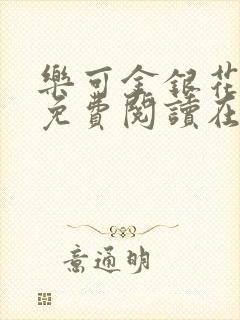 樂可金銀花
免費閱讀在
意通明